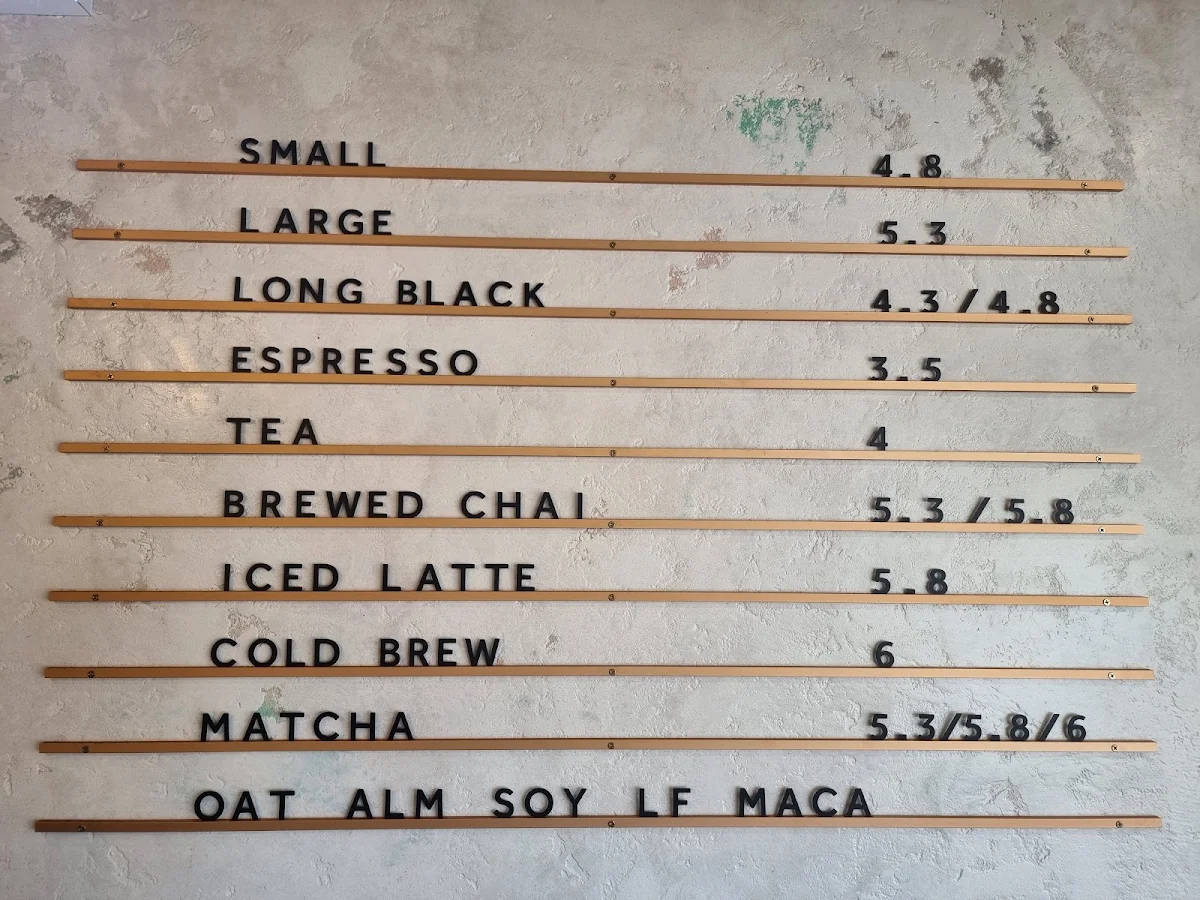 SMALL 4.8
LARGE 5.3
LONG BLACK 4.3/4.8
ESPRESSO 3.5
TEA 4
BREWED CHAI 5.3/5.8
ICED LATTE 5.8
COLD BREW 6
MATCHA 5.3/5.8/6
OAT ALM SOY LF MACA